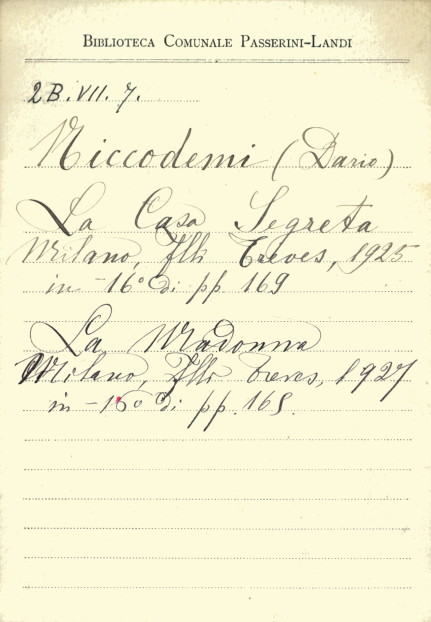 BIBLIOTECA COMUNALE PASSERINI-LANDI
2B.VII.7.
Niccodemi (Dario)
La Casa Segreta
Milano, Flli Treves, 1925
in-16° di pp. 169
La Madonna
Milano, Flli Treves, 1927
in-16° di pp. 165.